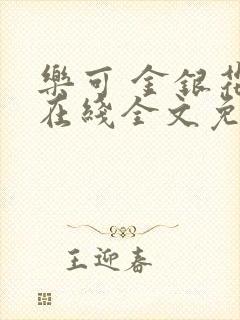 樂可 金銀花
在綫全文免
王迎春